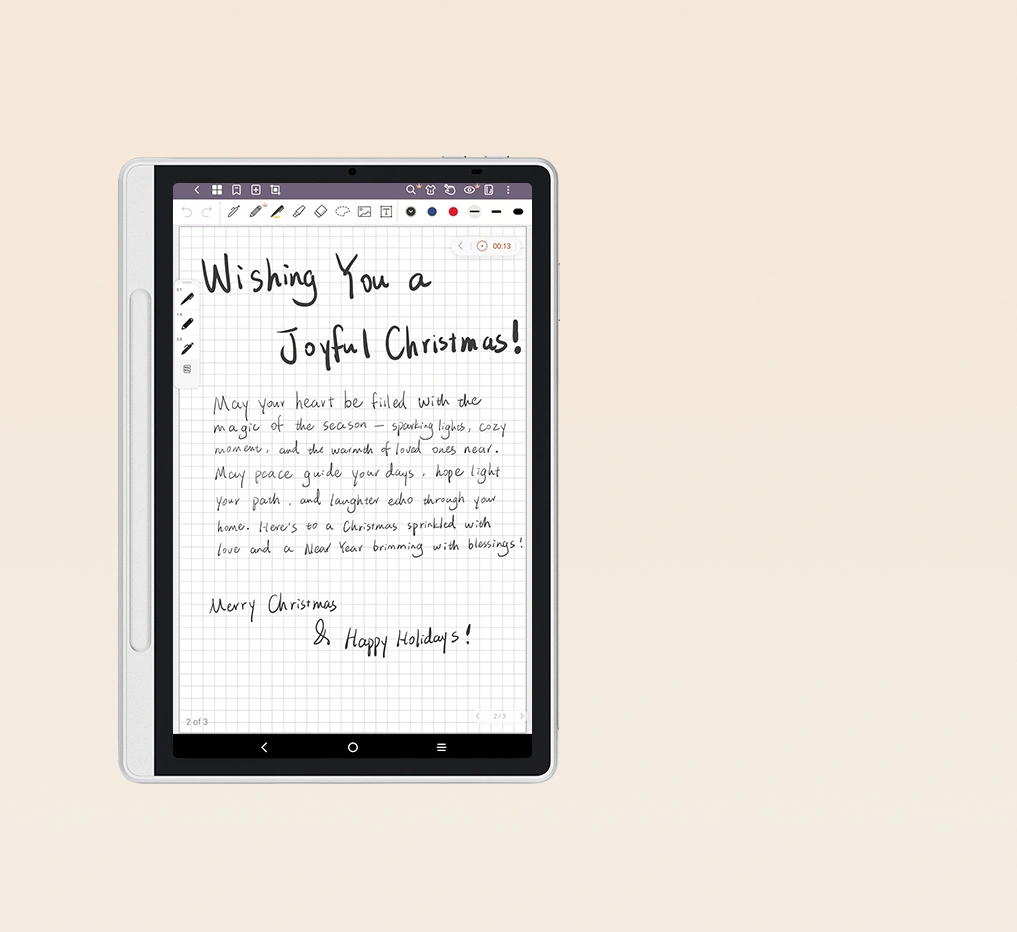 00:13
Wishing You a
Joyful Christmas!
May your heart be filled with the
magic of the season – sparking lights, cozy
moment, and the warmth of loved ones near.
May peace guide your days, hope light
your path, and laughter echo through your
home. Here's to a Christmas sprinkled with
love and a New Year brimming with blessings!
Merry Christmas
& Happy Holidays!
2 of 3
2/3